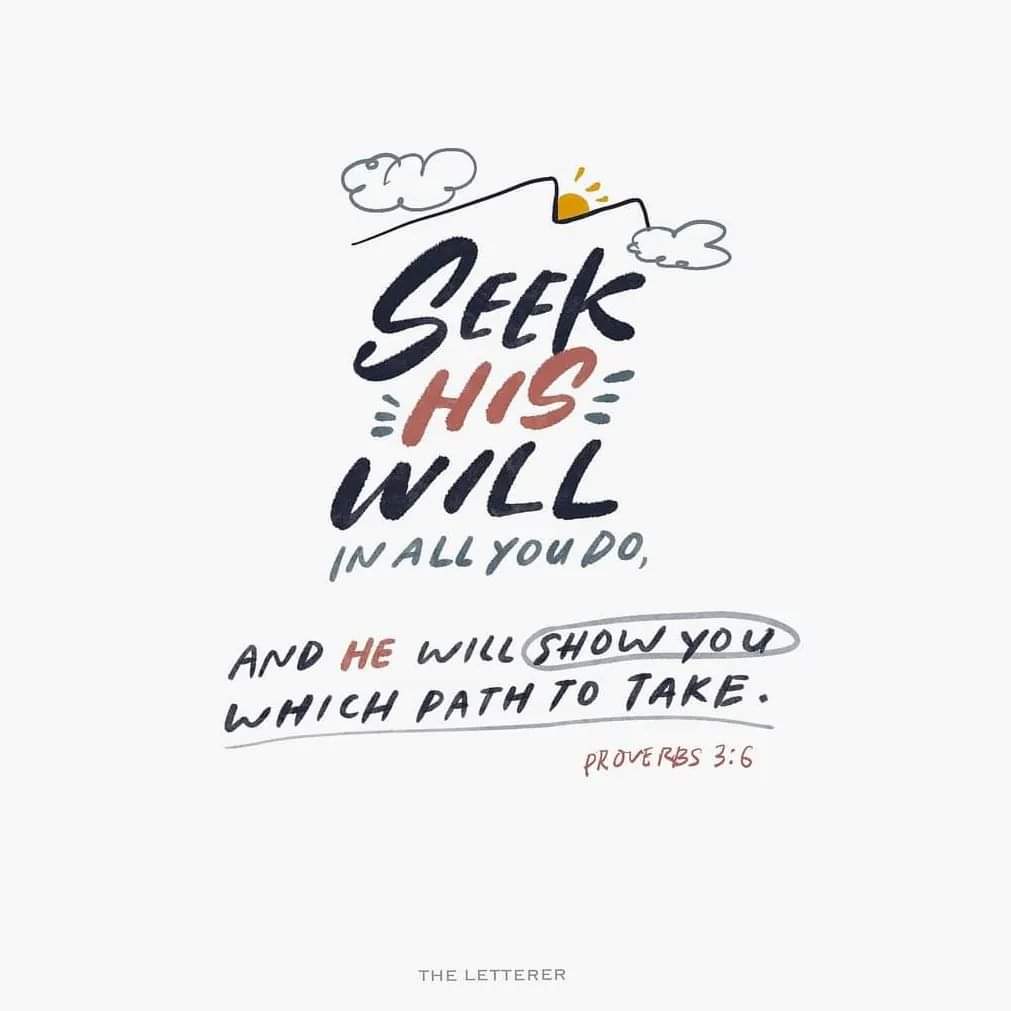 SEEK
HIS
WILL
IN ALL YOU DO,
AND HE WILL SHOW YOU
WHICH PATH TO TAKE.
PROVERBS 3:6
THE LETTERER